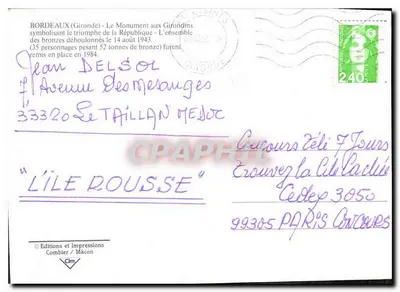 BORDEAUX (Gironde) - Le Monument aux Girondins
symbolisant le triomphe de la République - L'ensemble
des bronzes déboulonnés le 14 août 1943.
(35 personnages pesant 52 tonnes de bronze) furent
remis en place en 1984.
Jean DELSOL
7 Avenue Des Mesanges
33320 Le TAILLAN MEDOC
"L'ILE ROUSSE"
© Editions et Impressions
Combier / Mâcon
Cim
2,40
Concours Télé 7 Jours
Trouvez la Clé Cachée
Cedex 3050
99305 PARIS CONCOURS
CPAPHIL